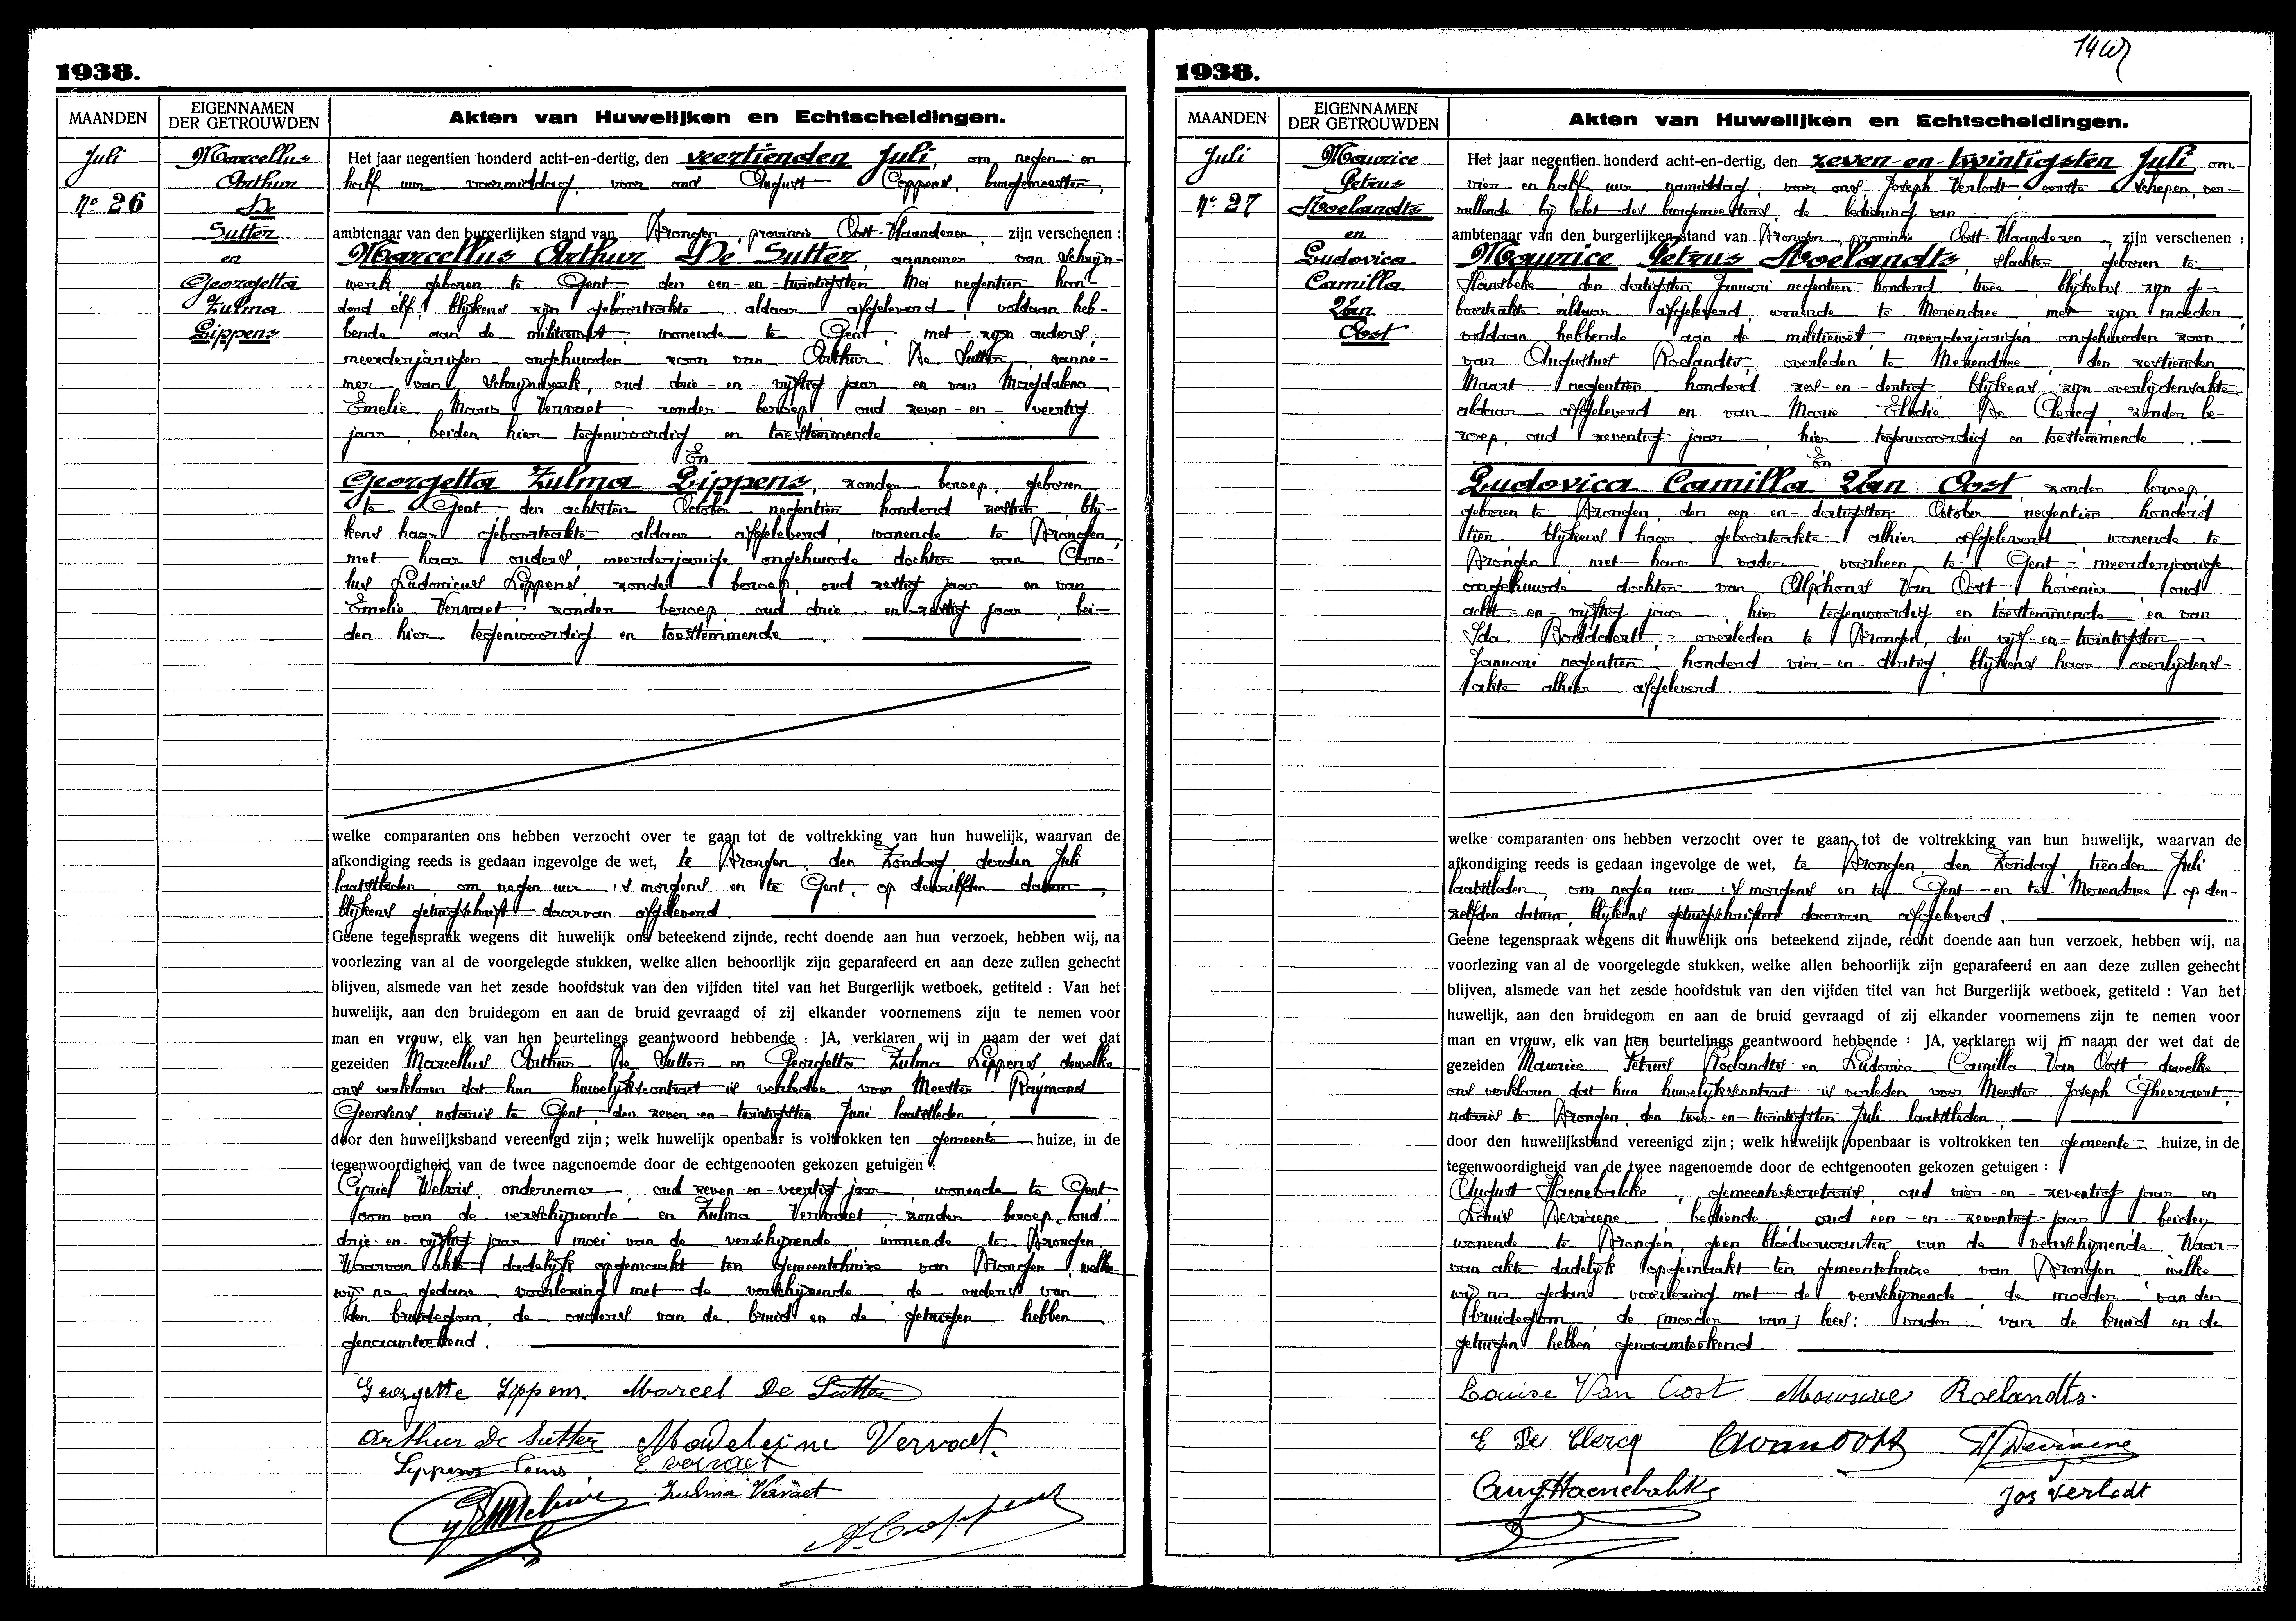 1938.
MAANDEN
EIGENNAMEN
DER GETROUWDEN
Akten van Huwelijken en Echtscheidingen.
Juli
Nº 26
Marcellus
Arthur
De
Sutter
en
Georgetta
Zulma
Lippens
Het jaar negentien honderd acht-en-dertig, den veertienden Juli, om negen en
half uur voormiddag, voor ons August Coppens, burgemeester,
ambtenaar van den burgerlijken stand van Drongen, provincie Oost-Vlaanderen, zijn verschenen :
Marcellus Arthur De Sutter, aannemer van schrijn-
werk, geboren te Gent, den een-en-twintigsten Mei negentien hon-
derd elf, blijkens zijn geboorteakte aldaar afgeleverd, voldaan heb-
bende aan de militiewet, wonende te Gent, met zijn ouders,
meerderjarigen ongehuwden zoon van Arthur De Sutter, aanne-
mer van schrijnwerk, oud drie-en-vijftig jaar en van Magdalena
Emelie Maria Vervaet, zonder beroep, oud zeven-en-veertig
jaar, beiden hier tegenwoordig en toestemmende.
En
Georgetta Zulma Lippens, zonder beroep, geboren
te Gent den achtsten October negentien honderd zestien, blij-
kens haar geboorteakte aldaar afgeleverd, wonende te Drongen,
met haar ouders, meerderjarige ongehuwde dochter van Caro-
lus Ludovicus Lippens, zonder beroep, oud zestig jaar en van
Emelie Vervaet zonder beroep oud drie en-zestig jaar, bei-
den hier tegenwoordig en toestemmende
welke comparanten ons hebben verzocht over te gaan tot de voltrekking van hun huwelijk, waarvan de
afkondiging reeds is gedaan ingevolge de wet, te Drongen, den Zondag, derden Juli
laatstleden, om negen uur 's morgens en te Gent, op denzelfden datum,
blijkens getuigschrift daarvan afgeleverd.
Geene tegenspraak wegens dit huwelijk ons beteekend zijnde, recht doende aan hun verzoek, hebben wij, na
voorlezing van al de voorgelegde stukken, welke allen behoorlijk zijn geparafeerd en aan deze zullen gehecht
blijven, alsmede van het zesde hoofdstuk van den vijfden titel van het Burgerlijk wetboek, getiteld : Van het
huwelijk, aan den bruidegom en aan de bruid gevraagd of zij elkander voornemens zijn te nemen voor
man en vrouw, elk van hen beurtelings geantwoord hebbende : JA, verklaren wij in naam der wet dat
gezeiden Marcellus Arthur De Sutter en Georgetta Zulma Lippens, dewelke
ons verklaren dat hun huwelijkscontract is verleden voor Meester Raymond
notaris te Gent, den zeven-en-twintigsten Juni laatstleden,
door den huwelijksband vereenigd zijn ; welk huwelijk openbaar is voltrokken ten gemeente huize, in de
tegenwoordigheid van de twee nagenoemde door de echtgenooten gekozen getuigen :
Cyriel Welvis, ondernemer, oud zeven-en-veertig jaar, wonende te Gent,
oom van de verschijnende en Zulma Vervaet zonder beroep, oud
drie-en-vijftig jaar moei van de verschijnende, wonende te Drongen.
Waarvan akte dadelijk opgemaakt ten gemeentehuize van Drongen, welke
wij na gedane voorlezing met de verschijnende de ouders van
den bruidegom, de ouders van de bruid en de getuigen hebben
genaamteekend.
Georgette Lippens. Marcel De Sutter
Arthur De Sutter Madeleine Vervaet.
Lippens Louis E Vervaet
Zulma Vervaet
A. Coppens
14
1938.
MAANDEN
EIGENNAMEN
DER GETROUWDEN
Akten van Huwelijken en Echtscheidingen.
Juli
Nº 27
Maurice
Petrus
Roelandts
en
Ludovica
Camilla
Van
Oost
Het jaar negentien honderd acht-en-dertig, den zeven-en-twintigsten Juli om
vier en half uur namiddag, voor ons Joseph Verlodt eerste schepen, ver-
vullende bij belet des burgemeesters, de bediening van
ambtenaar van den burgerlijken stand van Drongen, provincie Oost-Vlaanderen, zijn verschenen :
Maurice Petrus Roelandts, slachter, geboren te
Hansbeke, den dertigsten Januari negentien honderd twee, blijkens zijn ge-
boorteakte aldaar afgeleverd, wonende te Merendree met zijn moeder,
voldaan hebbende aan de militiewet, meerderjarigen ongehuwden zoon
van Augustus Roelandts, overleden te Merendree, den zestienden
Maart negentien honderd zes-en-dertig, blijkens zijn overlijdensakte
aldaar afgeleverd en van Marie Elodie De Clercq, zonder be-
roep, oud zeventig jaar, hier tegenwoordig en toestemmende.
En
Ludovica Camilla Van Oost, zonder beroep,
geboren te Drongen, den een-en-dertigsten October negentien honderd
tien blijkens haar geboorteakte alhier afgeleverd, wonende te
Drongen met haar vader, voorheen te Gent, meerderjarige
ongehuwde dochter van Alphons Van Oost hovenier, oud
acht-en-vijftig jaar, hier tegenwoordig en toestemmende en van
Ida Boddaert overleden te Drongen, den vijf-en-twintigsten
Januari negentien honderd vier-en-dertig, blijkens haar overlijdens-
akte alhier afgeleverd
welke comparanten ons hebben verzocht over te gaan tot de voltrekking van hun huwelijk, waarvan de
afkondiging reeds is gedaan ingevolge de wet, te Drongen, den Zondag, tienden Juli
laatstleden, om negen uur 's morgens en te Gent en te Merendree op den-
zelfden datum, blijkens getuigschriften daarvan afgeleverd.
Geene tegenspraak wegens dit huwelijk ons beteekend zijnde, recht doende aan hun verzoek, hebben wij, na
voorlezing van al de voorgelegde stukken, welke allen behoorlijk zijn geparafeerd en aan deze zullen gehecht
blijven, alsmede van het zesde hoofdstuk van den vijfden titel van het Burgerlijk wetboek, getiteld : Van het
huwelijk, aan den bruidegom en aan de bruid gevraagd of zij elkander voornemens zijn te nemen voor
man en vrouw, elk van hen beurtelings geantwoord hebbende : JA, verklaren wij in naam der wet dat de
gezeiden Maurice Petrus Roelandts en Ludovica Camilla Van Oost, dewelke
ons verklaren dat hun huwelijkscontract is verleden voor Meester Joseph Gheeraert,
notaris te Drongen, den twee-en-twintigsten Juli laatstleden,
door den huwelijksband vereenigd zijn ; welk huwelijk openbaar is voltrokken ten gemeente huize, in de
tegenwoordigheid van de twee nagenoemde door de echtgenooten gekozen getuigen :
August Haenebalcke, gemeentesecretaris, oud vier-en-zeventig jaar en
Louis Deviaene bediende oud een-en-zeventig jaar beiden
wonende te Drongen, geen bloedverwanten van de verschijnende Waar-
van akte dadelijk opgemaakt ten gemeentehuize van Drongen, welke
wij na gedane voorlezing met de verschijnende, de moeder van den
bruidegom, de [moeder van] lees: vader van de bruid en de
getuigen hebben genaamteekend.
Louise Van Oost Maurice Roelandts.
E De Clercq AVanOost Deviaene
Aug Haenebalcke Jos Verlodt